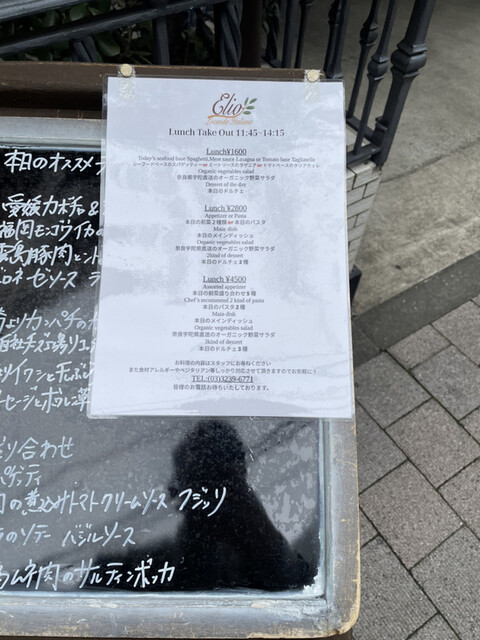 Elio
Locanda Italiana
Lunch Take Out 11:45~14:15
Lunch¥1600
Today's seafood base Spaghetti,Meat sauce Lasagna or Tomato base Tagliatelle
シーフードベースのスパゲッティー or ミートソースのラザニア or トマトベースのタリアテッレ
Organic vegetables salad
奈良宇陀直送のオーガニック野菜サラダ
Dessert of the day
本日のドルチェ
Lunch ¥2800
Appetizer or Pasta
本日の前菜2種類 or 本日のパスタ
Main dish
本日のメインディッシュ
Organic vegetables salad
奈良宇陀直送のオーガニック野菜サラダ
2kind of dessert
本日のドルチェ2種
Lunch ¥4500
Assorted appetizer
本日の前菜盛り合わせ5種
Chef's recommend 2 kind of pasta
本日のパスタ2種
Main dish
本日のメインディッシュ
Organic vegetables salad
奈良宇陀直送のオーガニック野菜サラダ
3kind of dessert
本日のドルチェ3種
お料理の内容はスタッフにお尋ねください
また食材アレルギーやベジタリアン等しっかり対応させて頂きますのでお気軽に!
TEL:(03)3239-6771
皆様のお電話お待ちいたしております。
本日のオススメ
愛媛カボチャ&
福岡モンゴウイカの
豚肉と
ロネーゼソース
盛り合わせ
スパゲッティ
の煮込みトマトクリームソース フジッリ
のソテー バジルソース
ムネ肉のサルティンボッカ